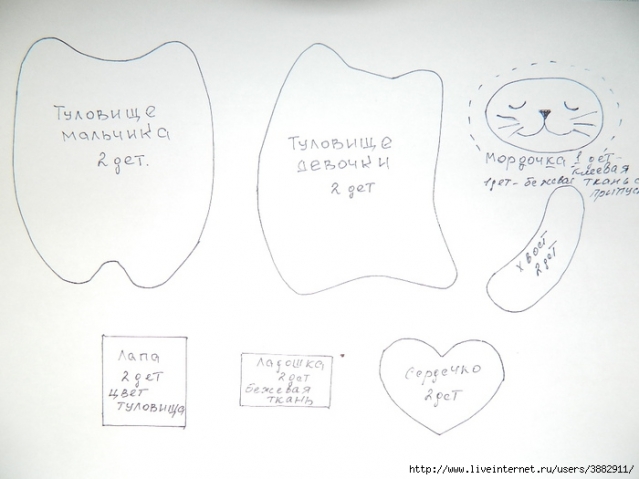 Туловище
мальчика
2 дет.
Туловище
девочки
2 дет
Мордочка 1 дет-
клеевая
1 дет- бежевая ткань с
припус
хвост
2 дет
Лапа
2 дет
цвет
туловища
Ладошка
2 дет
бежевая
ткань
Сердечко
2 дет
http://www.liveinternet.ru/users/3882911/